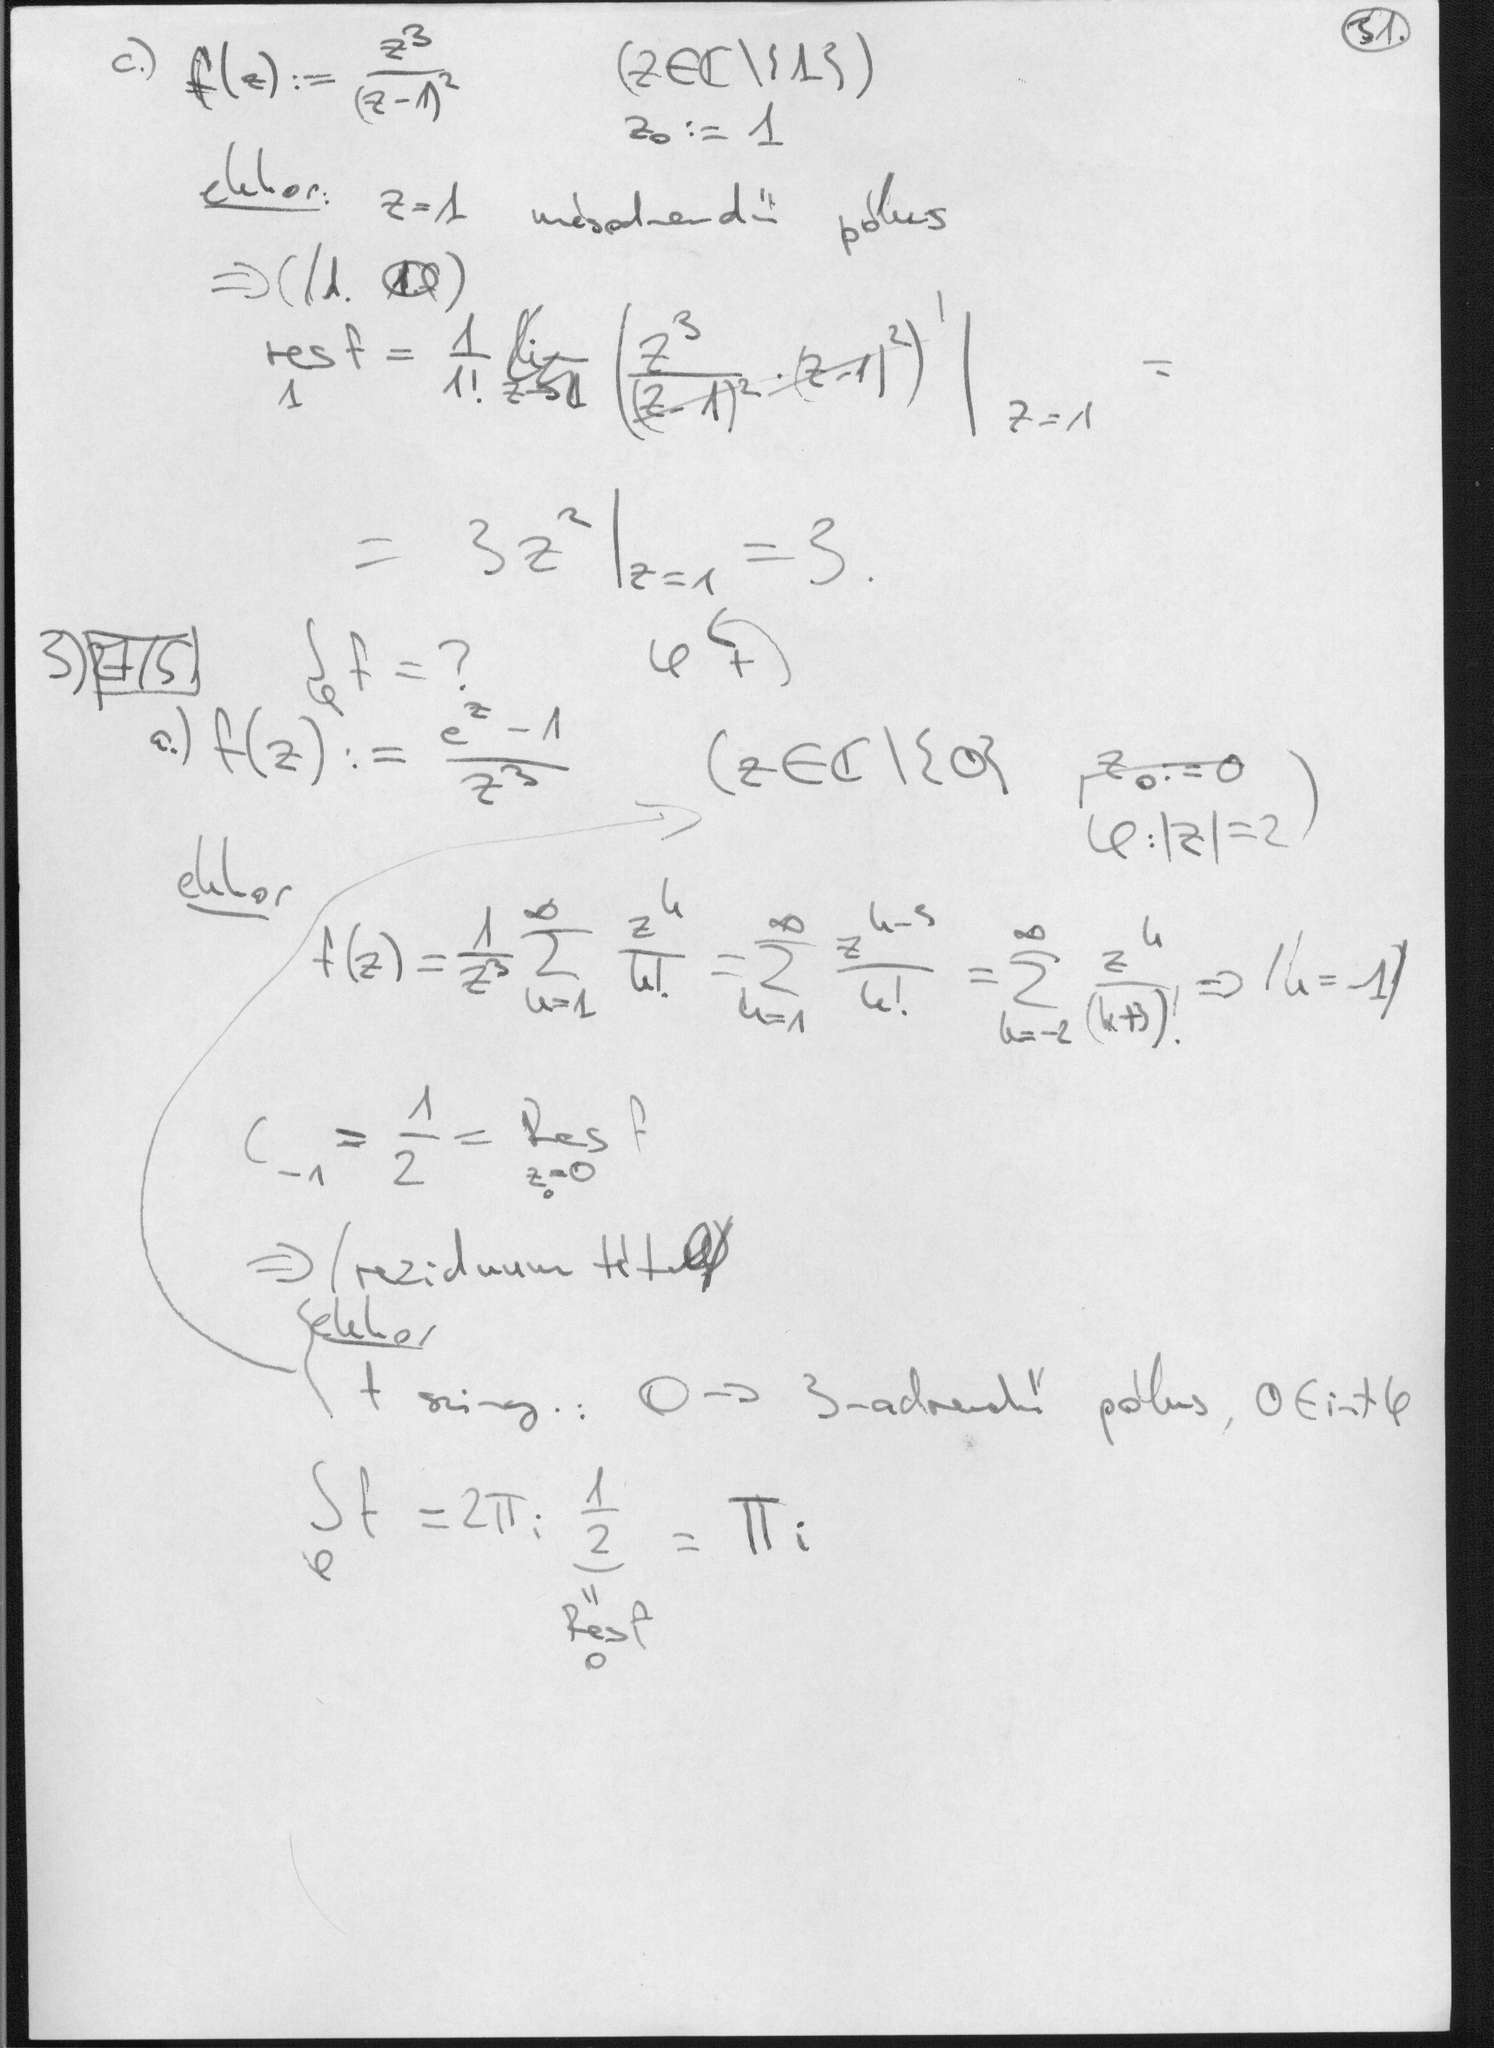 31.
c.) f(z) := z³/(z-1)² (z∈ℂ\{1})
z₀ := 1
ekkor: z=1 másodrendű pólus
⇒(/1.
res f = 1/1! (z³/(z-1)² · (z-1)²)' | z=1 =
1
= 3z² | z=1 = 3.
3) 7/5 ∫φ f = ? φ +
a.) f(z) := (e^z - 1)/z³ (z∈ℂ\{0} , z₀:=0
φ:|z|=2)
ekkor
f(z) = 1/z³ ∑_{k=1}^∞ z^k/k! = ∑_{k=1}^∞ z^{k-3}/k! = ∑_{k=-2}^∞ z^k/(k+3)! ⇒ /k=-1/
c₋₁ = 1/2 = Res f
z₀=0
⇒ (reziduum tétel)
ekkor
f szing.: 0 → 3-adrendű pólus, 0∈int φ
∫φ f = 2πi 1/2 = πi
"
Res f
0